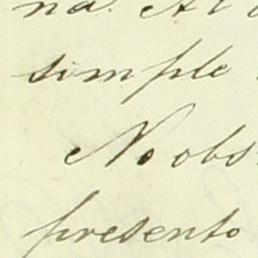 na. Al
simple
No obs
presento